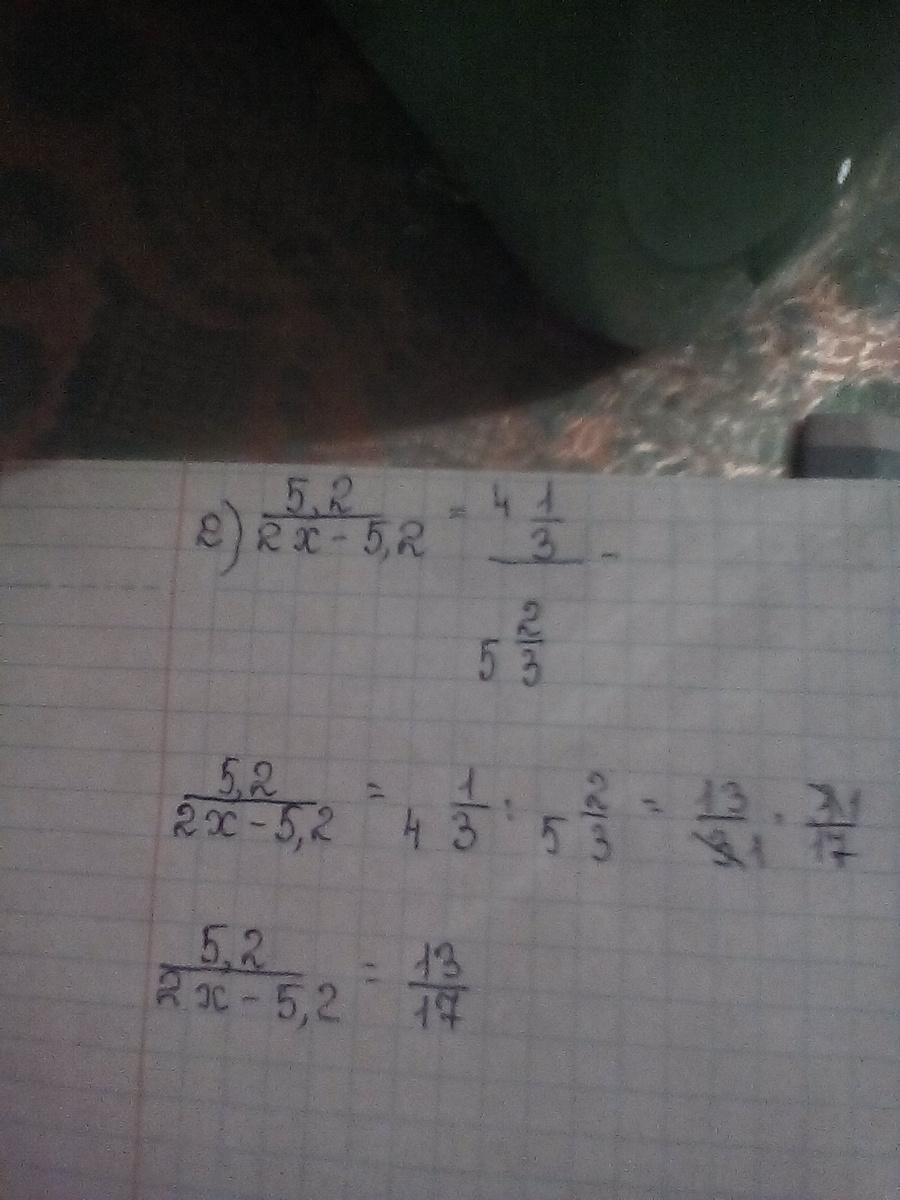 2) 5,2/(2x - 5,2) = 4 1/3 / 5 2/3 -
5,2/(2x - 5,2) = 4 1/3 : 5 2/3 = 13/3 1 · 3 1/17
5,2/(2x - 5,2) = 13/17